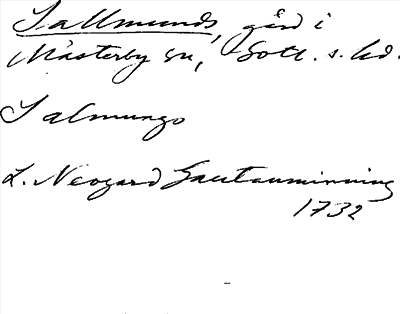 Sallmunds, gård i
Mästerby sn, Gotl. s. hd.
Salmungo
L. Neogard Gautauminning
1732